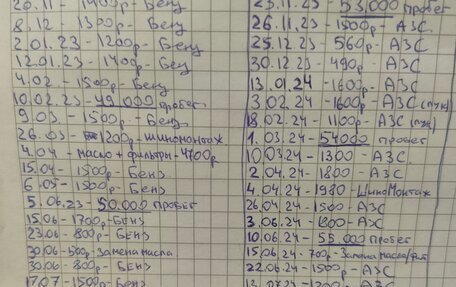 26.11 - 1400р - Бенз
8.12 - 1300р - Бенз
2.01.23 - 1200р - Бенз
12.01.23 - 1400р - Бенз
4.02. - 1500р - Бенз
10.02.23 - 49.000 пробег
9.03. - 1500р - Бенз
26.03 - 1200р - шиномонтаж
4.04 - масло + фильтры - 4700р
15.04 - 1500р - Бенз
6.05 - 1500р - Бенз
5.06.23 - 50.000 пробег
15.06 - 1700р - БЕНЗ
23.06 - 800р - БЕНЗ
30.06 - 500р - Замена масла
30.06 - 800р - БЕНЗ
17.07 - 1500р - БЕНЗ
23.11.23 - 53.000 пробег
26.11.23 - 1500р - АЗС
25.12.23 - 560р - АЗС
30.12.23 - 490р - АЗС
13.01.24 - 1600р - АЗС
3.02.24 - 1600р - АЗС
18.02.24 - 1100р - АЗС
1.03.24 - 54000 пробег
10.03.24 - 1300 - АЗС
2.04.24 - 1800 - АЗС
4.04.24 - 1980 - ШиноМонтаж
26.04.24 - 1500 - АЗС
3.06.24 - 1800 - АЗС
10.06.24 - 55.000 пробег
15.06.24 - 700р - Замена масла/фил
22.06.24 - 1500р - АЗС
1500р - АЗС